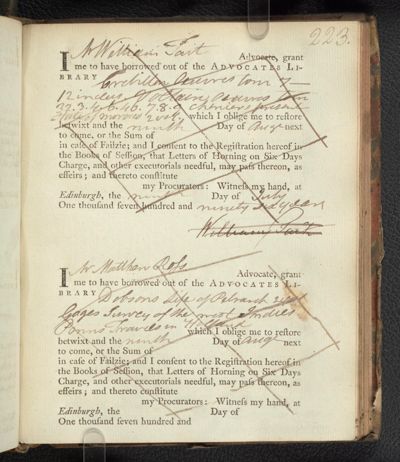 223.
I Mr William Tait Advocate, grant
me to have borrowed out of the ADVOCATES LI-
BRARY Crebillon Oeuvres tom
12 Voltaire Oeuvres tom
which I oblige me to restore
betwixt and the ninth Day of Augt next
to come, or the Sum of
in case of Failzie; and I consent to the Registration hereof in
the Books of Session, that Letters of Horning on Six Days
Charge, and other executorials needful, may pass thereon, as
effeirs; and thereto constitute
my Procurators: Witness my hand, at
Edinburgh, the ninth Day of July
One thousand seven hundred and ninety six years
William Tait
I Mr Matthew Ross Advocate, grant
me to have borrowed out of the ADVOCATES LI-
BRARY Dobsons Life of Petrarch 2 vol
Gages Survey of the West Indies
Travels in which I oblige me to restore
betwixt and the ninth Day of Augt next
to come, or the Sum of
in case of Failzie; and I consent to the Registration hereof in
the Books of Session, that Letters of Horning on Six Days
Charge, and other executorials needful, may pass thereon, as
effeirs; and thereto constitute
my Procurators: Witness my hand, at
Edinburgh, the Day of
One thousand seven hundred and